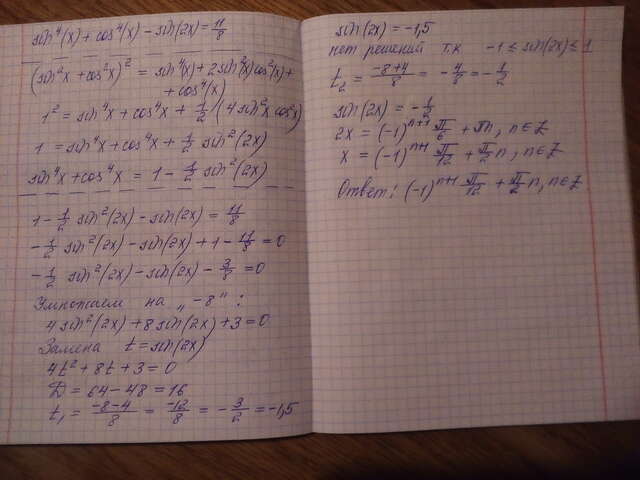 sin⁴(x) + cos⁴(x) − sin(2x) = 11/8
(sin²x + cos²x)² = sin⁴(x) + 2sin²(x)cos²(x) +
+ cos⁴(x)
1² = sin⁴x + cos⁴x + 1/2 (4sin²x cos²x)
1 = sin⁴x + cos⁴x + 1/2 sin²(2x)
sin⁴x + cos⁴x = 1 − 1/2 sin²(2x)
1 − 1/2 sin²(2x) − sin(2x) = 11/8
−1/2 sin²(2x) − sin(2x) + 1 − 11/8 = 0
−1/2 sin²(2x) − sin(2x) − 3/8 = 0
Умножаем на „−8“:
4sin²(2x) + 8sin(2x) + 3 = 0
Замена t = sin(2x)
4t² + 8t + 3 = 0
D = 64 − 48 = 16
t₁ = (−8−4)/8 = −12/8 = −3/2 = −1,5
sin(2x) = −1,5
нет решений т.к −1 ≤ sin(2x) ≤ 1
t₂ = (−8+4)/8 = −4/8 = −1/2
sin(2x) = −1/2
2x = (−1)ⁿ⁺¹ π/6 + πn, n∈Z
x = (−1)ⁿ⁺¹ π/12 + π/2 n, n∈Z
Ответ: (−1)ⁿ⁺¹ π/12 + π/2 n, n∈Z